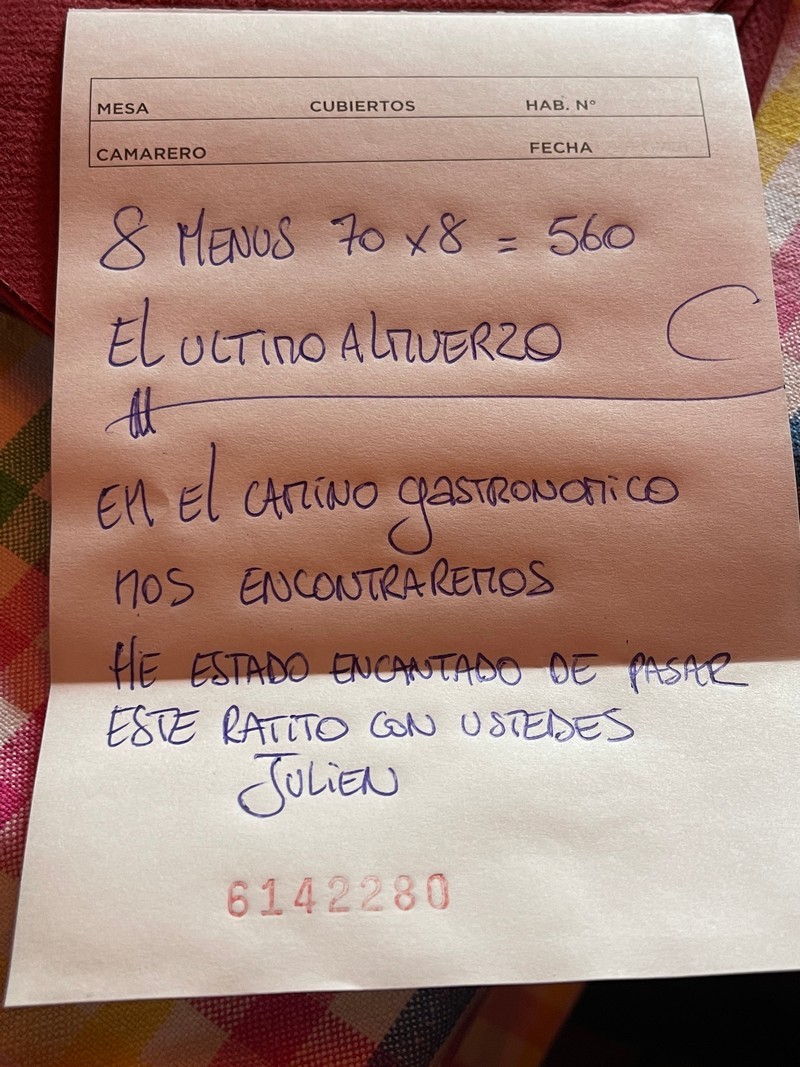 MESA CUBIERTOS HAB. Nº
CAMARERO FECHA
8 MENUS 70 x 8 = 560
El ULTIMO ALMUERZO
EN El CAMINO gASTRONOMICO
NOS ENCONTRAREMOS
HE ESTADO ENCANTADO DE PASAR
ESTE RATITO CON USTEDES
JULIEN
6142280